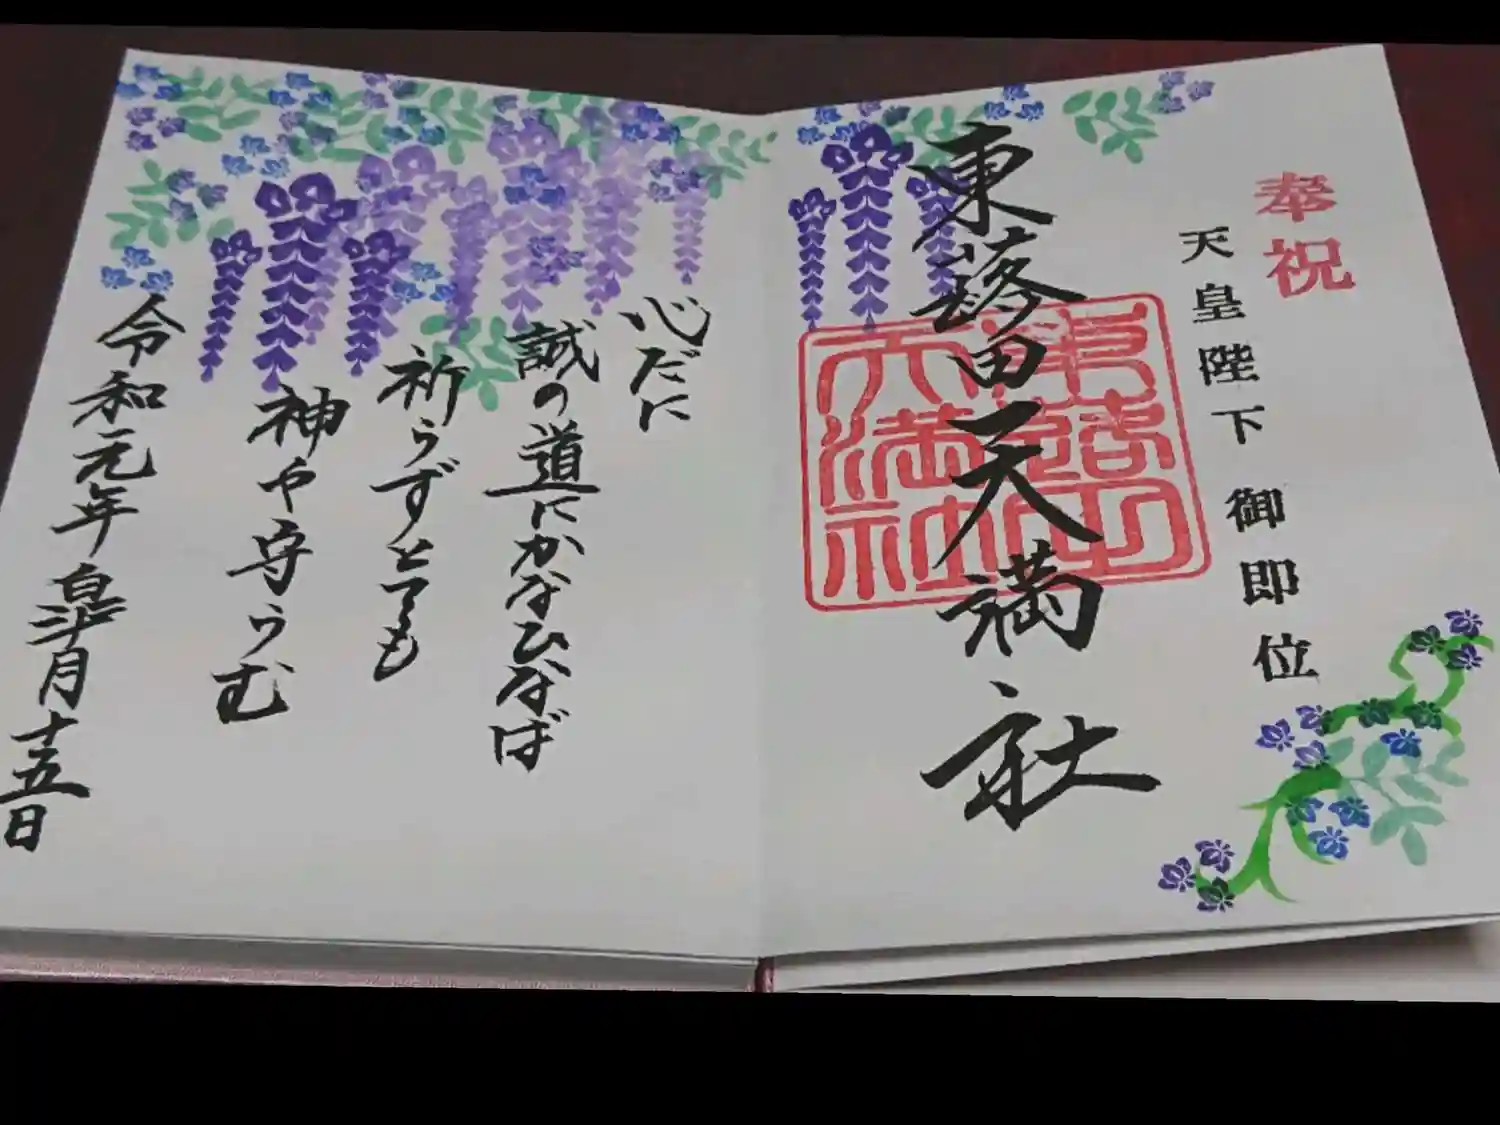 奉祝
天皇陛下御即位
東蕗田天満社
東蕗田天満社
心だに
誠の道にかなひなば
祈らずとても
神や守らむ
令和元年皐月十五日